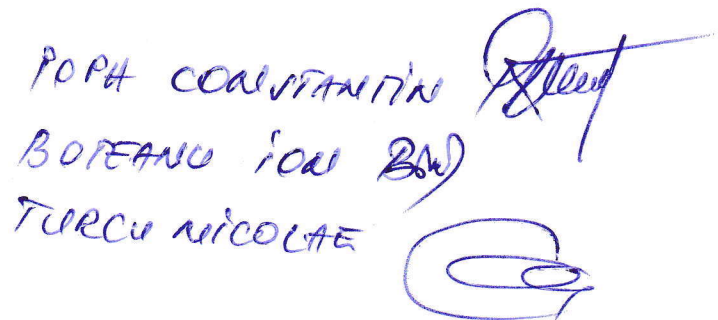 POPA CONSTANTIN
BOTEANU ION
TURCU NICOLAE